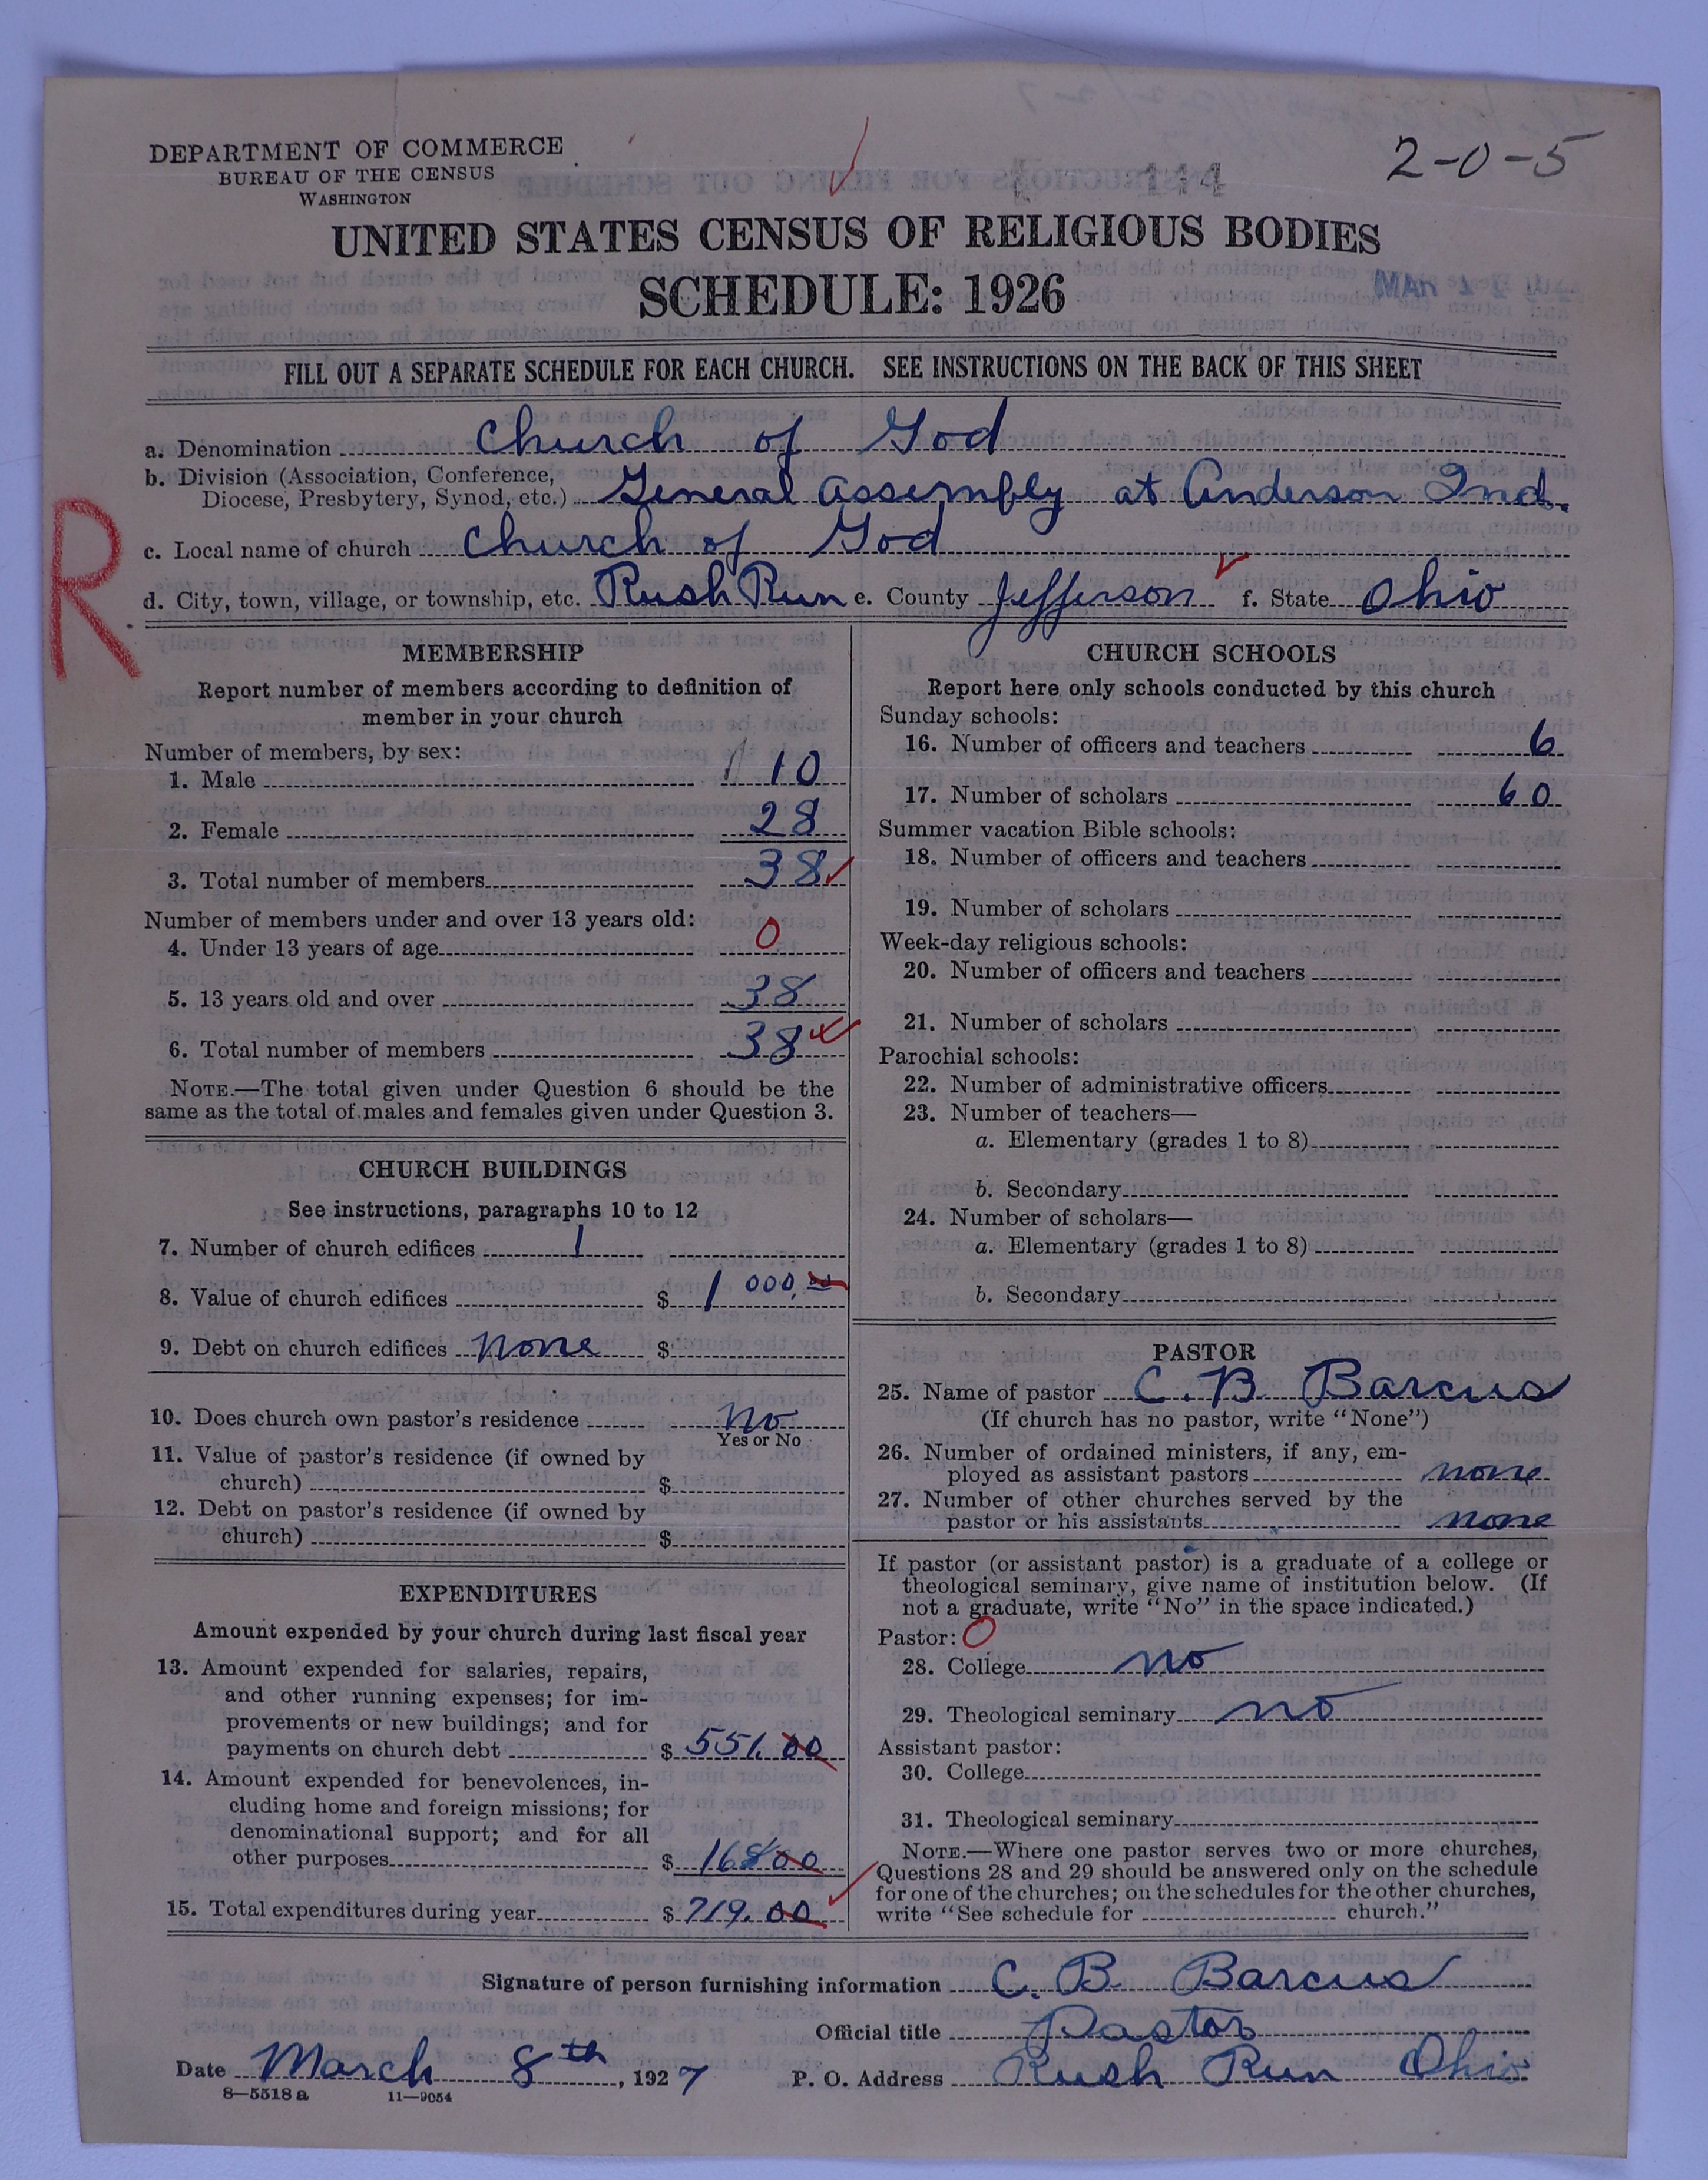 DEPARTMENT OF COMMERCE
BUREAU OF THE CENSUS
WASHINGTON
2-0-5
UNITED STATES CENSUS OF RELIGIOUS BODIES
SCHEDULE: 1926
FILL OUT A SEPARATE SCHEDULE FOR EACH CHURCH. SEE INSTRUCTIONS ON THE BACK OF THIS SHEET
R
a. Denomination Church of God
b. Division (Association, Conference,
Diocese, Presbytery, Synod, etc.) General Assembly at Anderson Ind.
c. Local name of church Church of God
d. City, town, village, or township, etc. Rush Run e. County Jefferson f. State Ohio
MEMBERSHIP
Report number of members according to definition of
member in your church
Number of members, by sex:
1. Male 10
2. Female 28
3. Total number of members 38
Number of members under and over 13 years old:
4. Under 13 years of age 0
5. 13 years old and over 38
6. Total number of members 38
NOTE.—The total given under Question 6 should be the
same as the total of males and females given under Question 3.
CHURCH BUILDINGS
See instructions, paragraphs 10 to 12
7. Number of church edifices 1
8. Value of church edifices $ 1 000.00
9. Debt on church edifices none $
10. Does church own pastor's residence no
Yes or No
11. Value of pastor's residence (if owned by
church) $
12. Debt on pastor's residence (if owned by
church) $
EXPENDITURES
Amount expended by your church during last fiscal year
13. Amount expended for salaries, repairs,
and other running expenses; for im-
provements or new buildings; and for
payments on church debt $ 551.00
14. Amount expended for benevolences, in-
cluding home and foreign missions; for
denominational support; and for all
other purposes $ 168 00
15. Total expenditures during year $ 719.00
CHURCH SCHOOLS
Report here only schools conducted by this church
Sunday schools:
16. Number of officers and teachers 6
17. Number of scholars 60
Summer vacation Bible schools:
18. Number of officers and teachers
19. Number of scholars
Week-day religious schools:
20. Number of officers and teachers
21. Number of scholars
Parochial schools:
22. Number of administrative officers
23. Number of teachers—
a. Elementary (grades 1 to 8)
b. Secondary
24. Number of scholars—
a. Elementary (grades 1 to 8)
b. Secondary
PASTOR
25. Name of pastor C. B Barcus
(If church has no pastor, write "None")
26. Number of ordained ministers, if any, em-
ployed as assistant pastors none
27. Number of other churches served by the
pastor or his assistants none
If pastor (or assistant pastor) is a graduate of a college or
theological seminary, give name of institution below. (If
not a graduate, write "No" in the space indicated.)
Pastor: 0
28. College no
29. Theological seminary no
Assistant pastor:
30. College
31. Theological seminary
NOTE.—Where one pastor serves two or more churches,
Questions 28 and 29 should be answered only on the schedule
for one of the churches; on the schedules for the other churches,
write "See schedule for church."
Signature of person furnishing information C. B. Barcus
Official title Pastor
Date March 8th, 1927 P. O. Address Rush Run Ohio
8—5518 a 11—9054